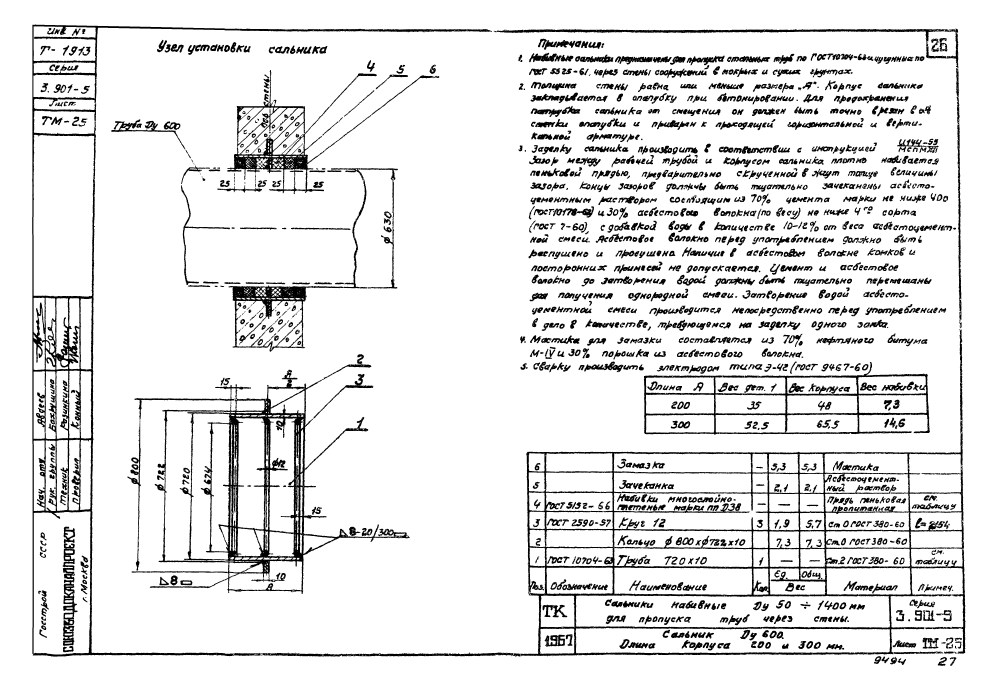 Инв №
Т-1913
Серия
3.901-5
Лист
ТМ-25
Узел установки сальника
стены
4
5
6
Труба Ду 600
25
25
25
25
ф 630
26
Примечания:
1. Набивные сальники предназначены для пропуска стальных труб по ГОСТ 10704-63 и чугунных по
ГОСТ 5525-61, через стены сооружений в мокрых и сухих грунтах.
2. Толщина стены равна или меньше размера „А". Корпус сальника
закладывается в опалубку при бетонировании. Для предохранения
патрубка сальника от смещения он должен быть точно врезан в
стенки опалубки и приварен к проходящей горизонтальной и верти-
кальной арматуре.
3. Заделку сальника производить в соответствии с инструкцией И144-55 МСПМХП
Зазор между рабочей трубой и корпусом сальника плотно набивается
пеньковой прядью, предварительно скрученной в жгут толще величины
зазора. Концы зазоров должны быть тщательно зачеканены асбесто-
цементным раствором состоящим из 70% цемента марки не ниже 400
(ГОСТ 10178-62) и 30% асбестового волокна (по весу) не ниже 4го сорта
(ГОСТ 7-60), с добавкой воды в количестве 10-12% от веса асбестоцемент-
ной смеси. Асбестовое волокно перед употреблением должно быть
распушено и просушено. Наличие в асбестовом волокне комков и
посторонних примесей не допускается. Цемент и асбестовое
волокно до затворения водой должны быть тщательно перемешаны
для получения однородной смеси. Затворение водой асбесто-
цементной смеси производится непосредственно перед употреблением
в дело в количестве, требующемся на заделку одного замка.
4. Мастика для замазки составляется из 70% нефтяного битума
М-IV и 30% порошка из асбестового волокна.
5. Сварку производить электродом типа Э-42 (ГОСТ 9467-60)
Длина А Вес дет. 1 Вес корпуса Вес набивки
200 35 48 7,3
300 52,5 65,5 14,6
15
А/2
2
3
1
10
ф 800
ф 722
ф 720
ф 674
ф12
15
8-20/300
8
10
А
6 Замазка — 5,3 5,3 Мастика
5 Зачеканка — 2,1 2,1 Асбестоцемент-
ный раствор
4 ГОСТ 5152-66 Набивки многослойно-
плетеные марки пп Д38 — — — Прядь пеньковая
пропитанная см.
таблицу
3 ГОСТ 2590-57 Круг 12 3 1,9 5,7 ст 0 ГОСТ 380-60
2 Кольцо ф 800 х ф 722 х 10 7,3 7,3 Ст. 0 ГОСТ 380-60
1 ГОСТ 10704-63 Труба 720х10 1 — Ст.2 ГОСТ 380-60 см.
таблицу
Поз. Обозначение Наименование Кол. Ед. Общ. Вес Материал Примеч.
ТК
1967
Сальники набивные Ду 50 ÷ 1400 мм
для пропуска труб через стены.
Серия
3.901-5
Сальник Ду 600.
Длина корпуса 200 и 300 мм.
Лист ТМ-25
9494 27
Нач. отд. Авдеев
Рук. группы Вахрушина
Техник Разинкина
Проверил Конный
Госстрой СССР
СОЮЗВОДОКАНАЛПРОЕКТ
г. Москва